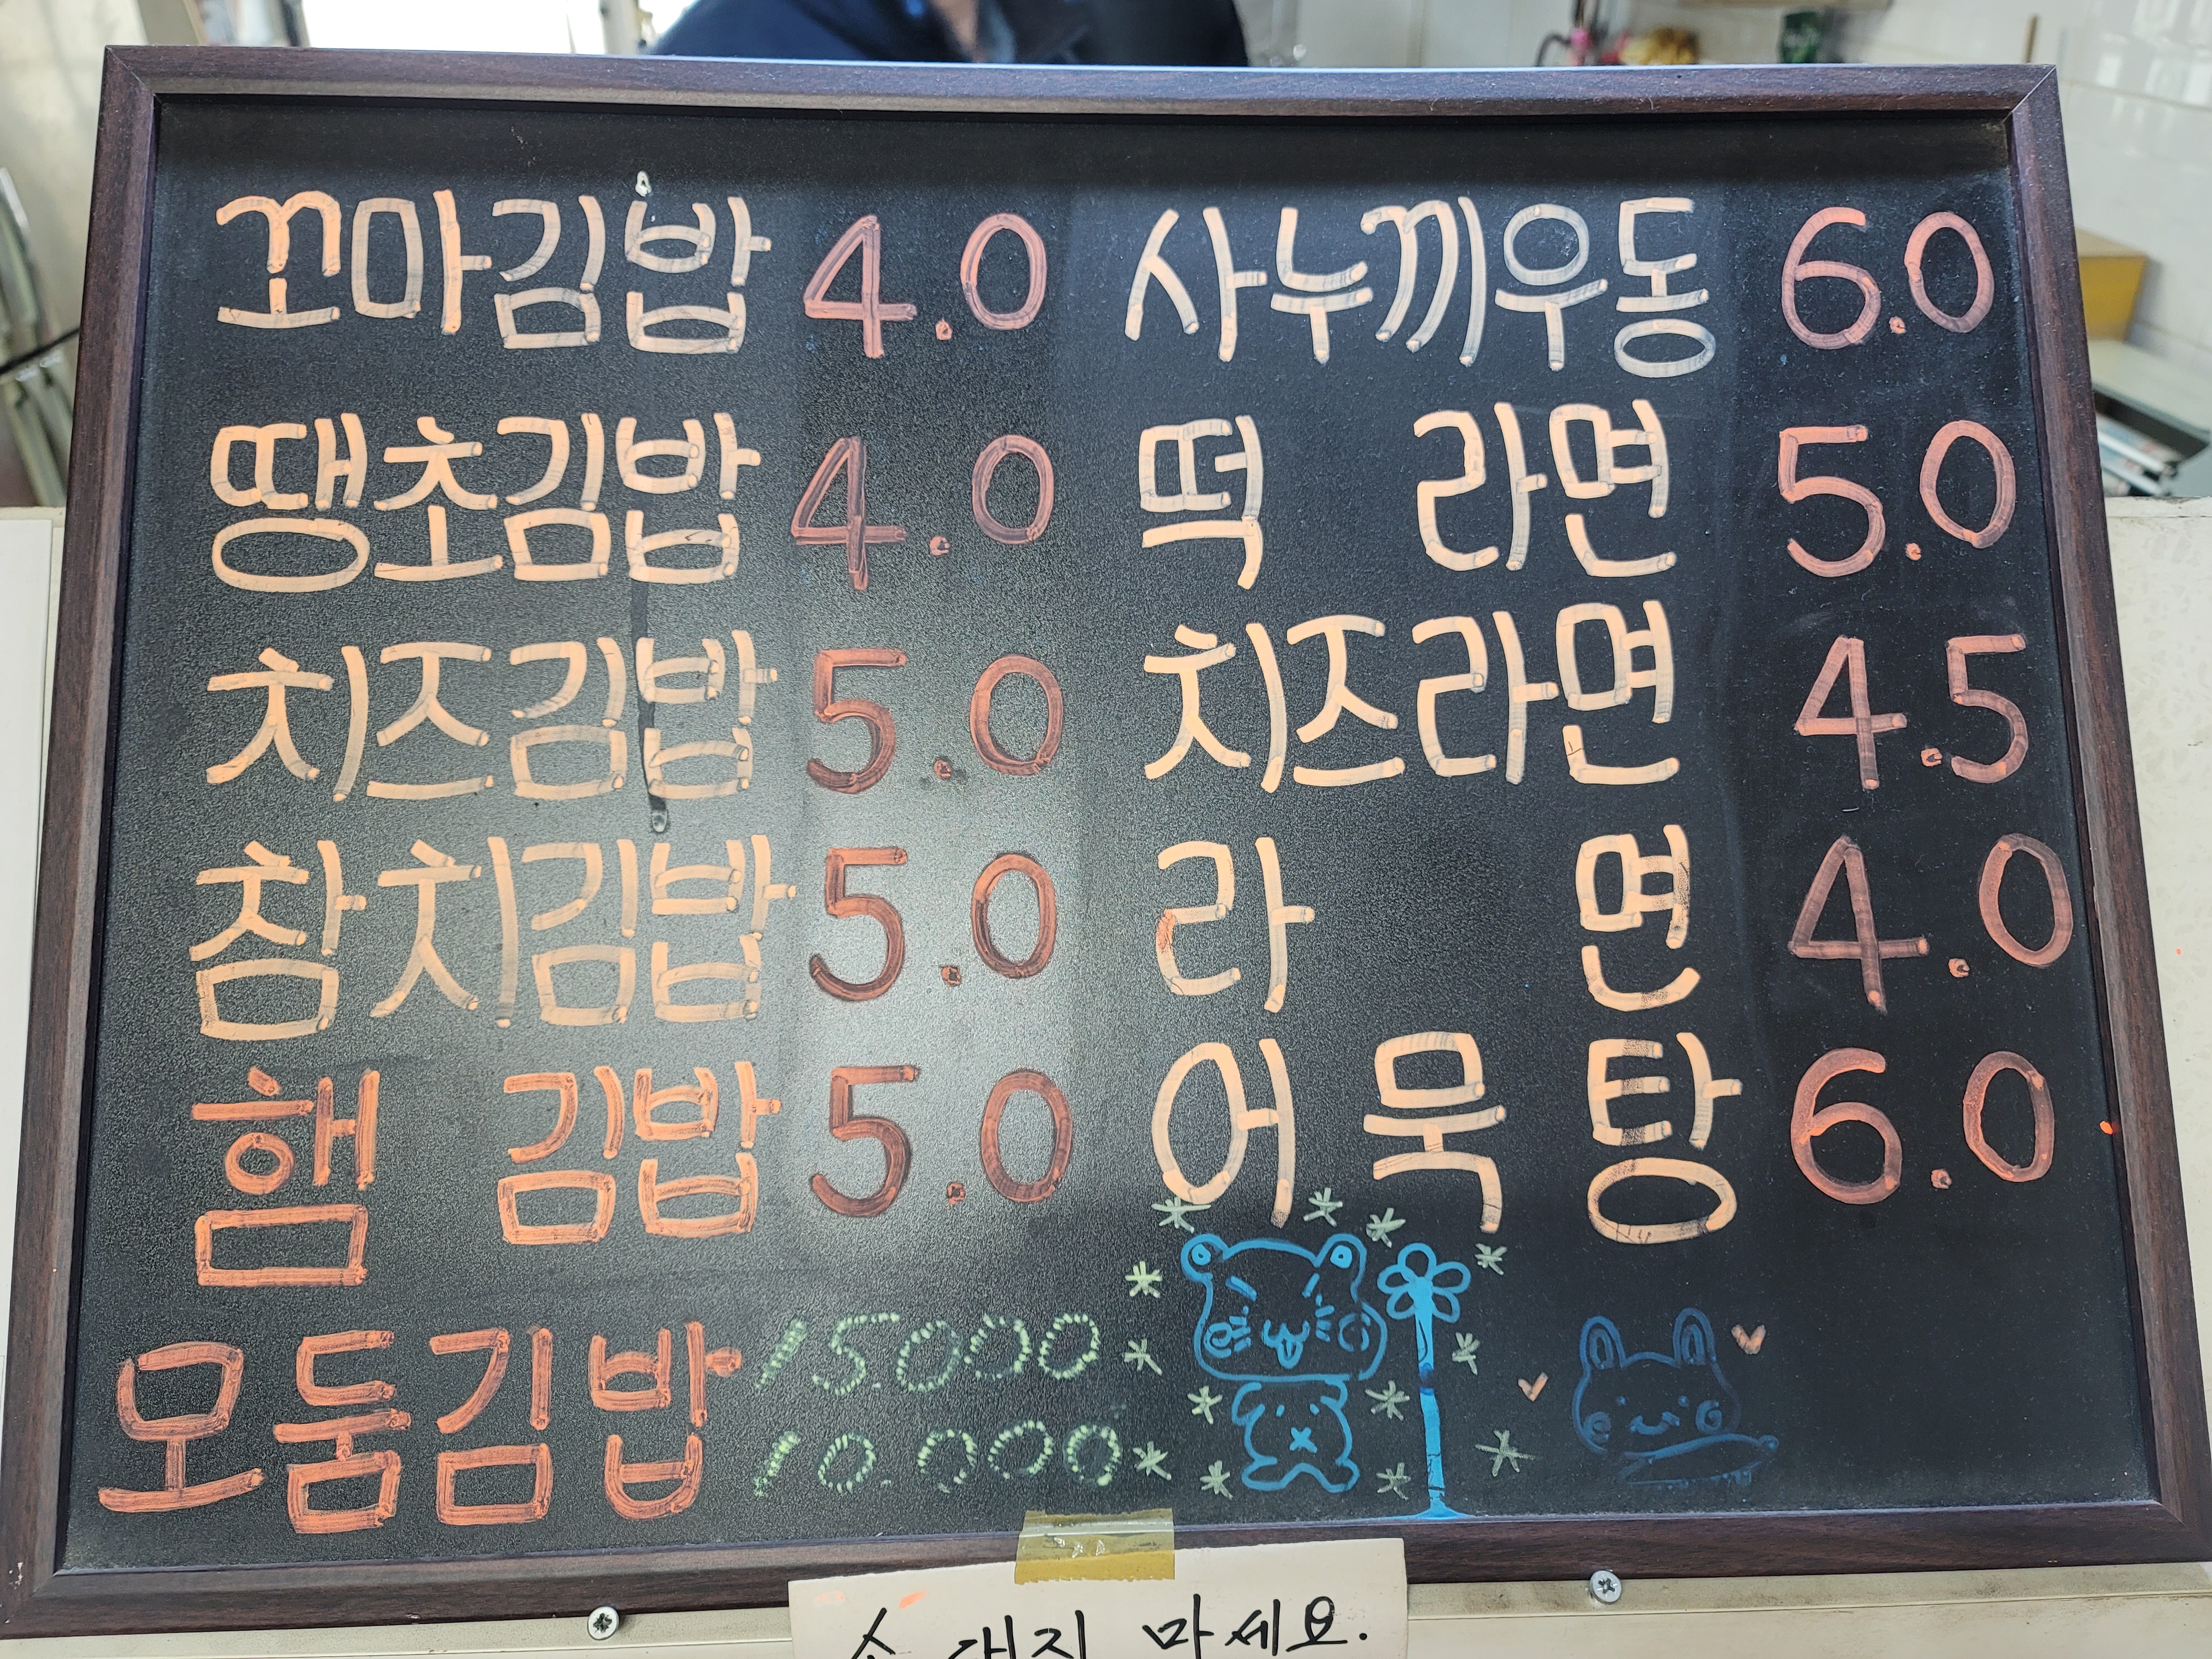 꼬마김밥 4.0
땡초김밥 4.0
치즈김밥 5.0
참치김밥 5.0
햄 김밥 5.0
모둠김밥 15.000
10.000
사누끼우동 6.0
떡 라면 5.0
치즈라면 4.5
라 면 4.0
어 묵 탕 6.0
손 대지 마세요.